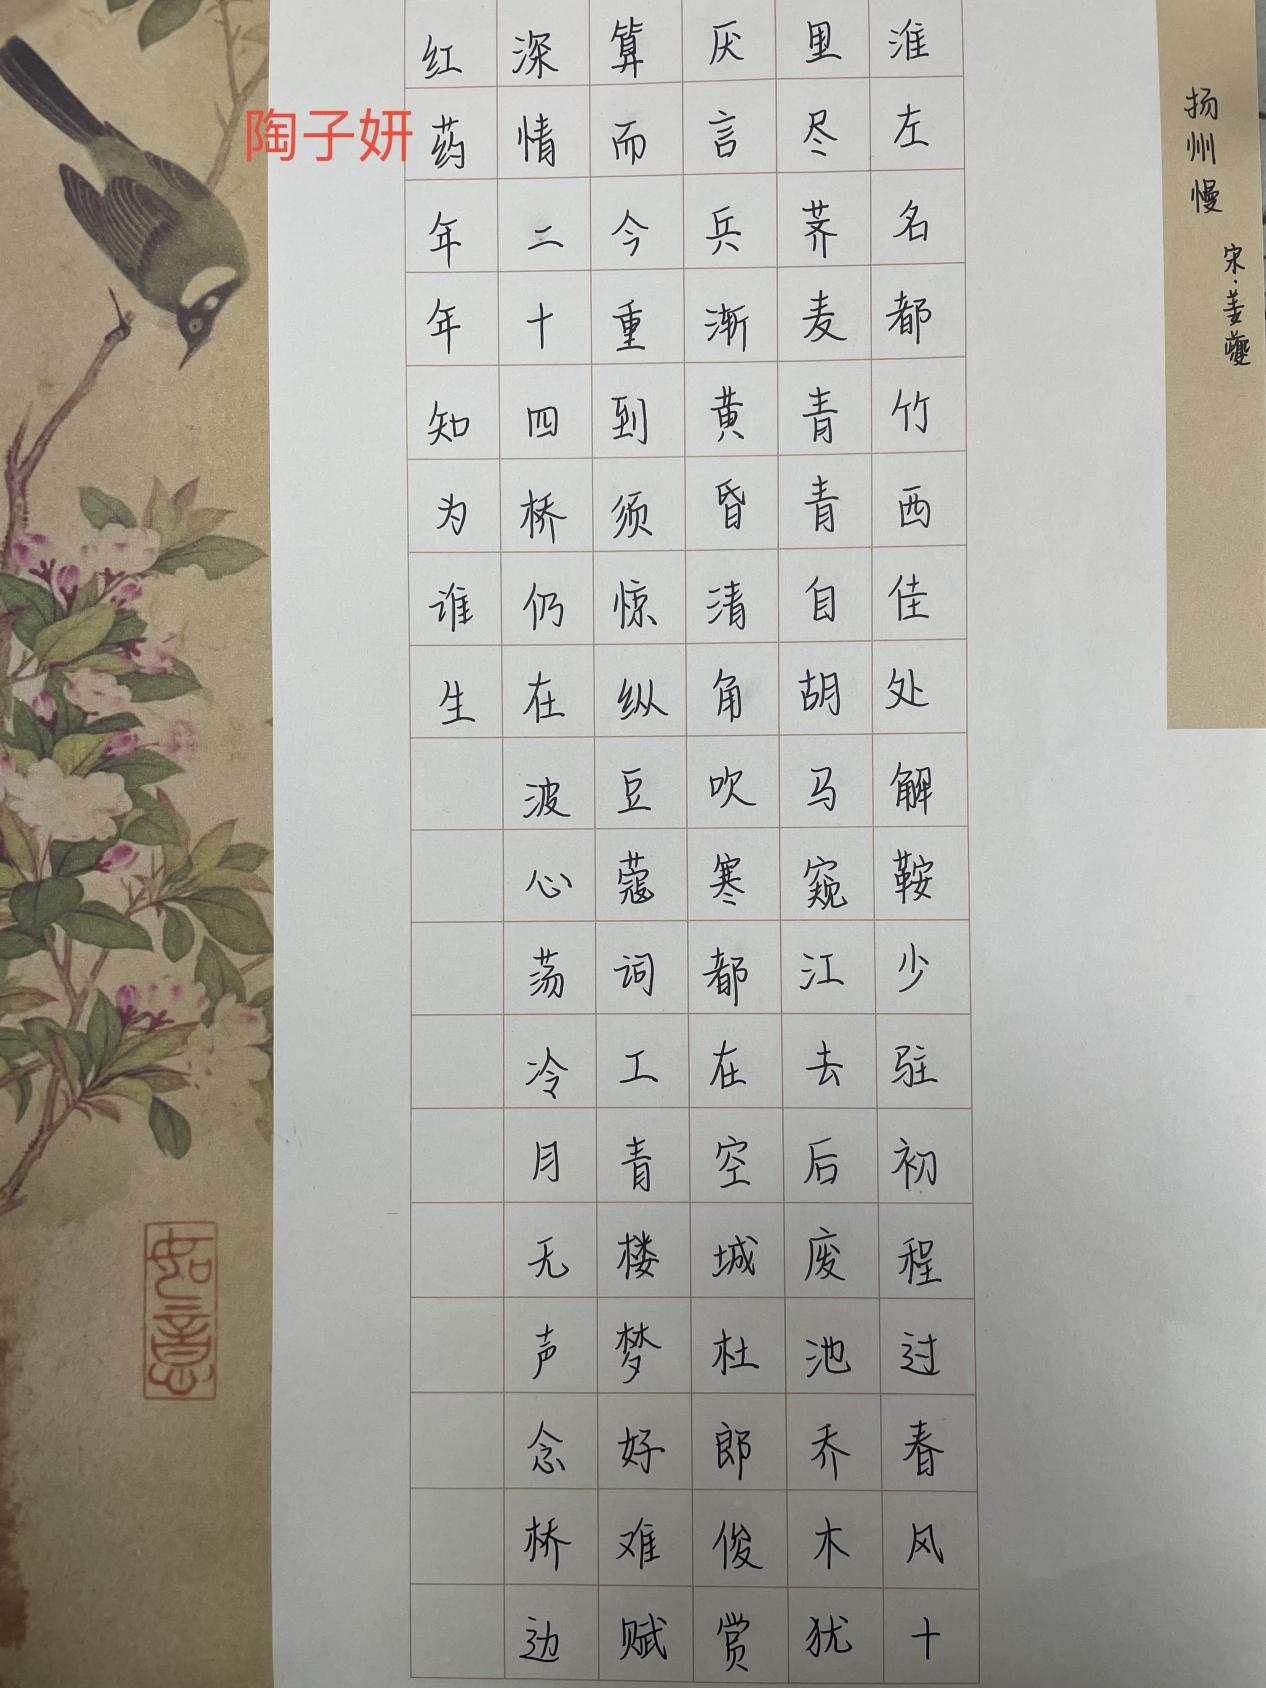 扬州慢
宋·姜夔
淮左名都竹西佳处解鞍少驻初程过春风十
里尽荠麦青青自胡马窥江去后废池乔木犹
厌言兵渐黄昏清角吹寒都在空城杜郎俊赏
算而今重到须惊纵豆蔻词工青楼梦好难赋
深情二十四桥仍在波心荡冷月无声念桥边
红药年年知为谁生
陶子妍
如意